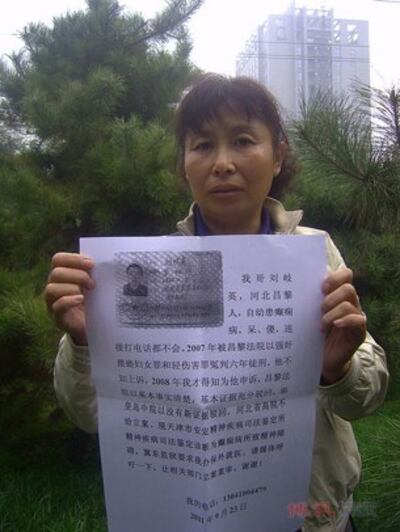 我哥刘岐
英，河北昌黎
人，自幼患癫痫
病，呆、傻，连
拨打电话都不会。2007年被昌黎法院以强奸
猥亵妇女罪和轻伤害罪冤判六年徒刑，他不
知上诉，2008年我才得知为他申诉，昌黎法
院以基本事实清楚，基本证据充分驳回，秦
皇岛中院以没有新证据驳回，河北省高院不
给立案，现天津市安定精神疾病司法鉴定所
精神疾病司法鉴定诊断为癫痫病所致精神障
碍，冀东监狱要求我办保外就医，请媒体呼
吁一下，让相关部门立案复审，谢谢！
我的电话：13041004479
2011年9月23日
博讯